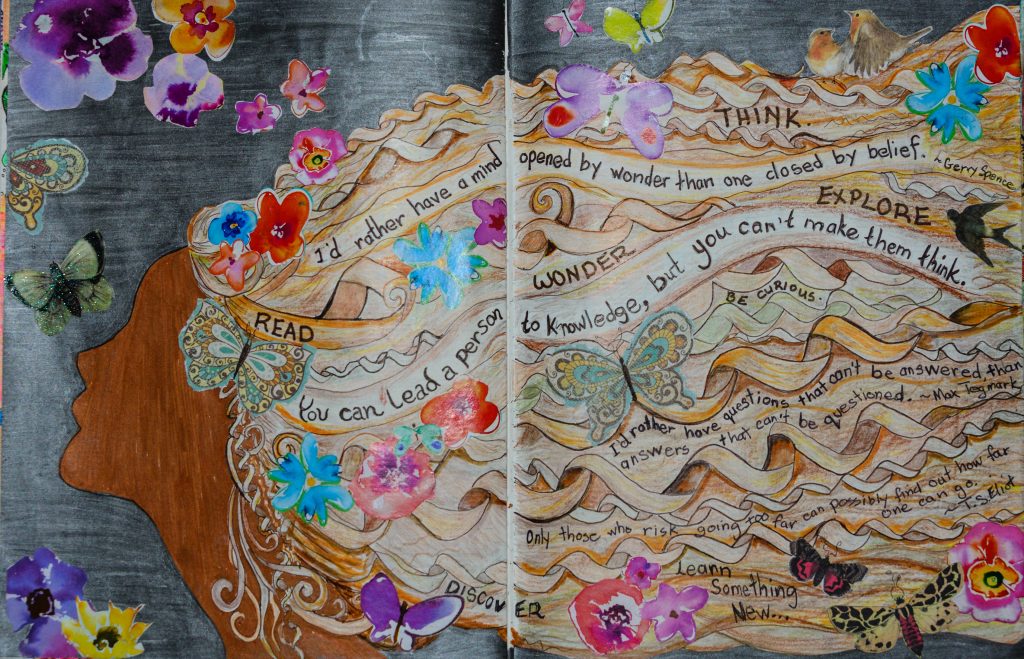 THINK.
I'd rather have a mind opened by wonder than one closed by belief.
~Gerry Spence
EXPLORE
WONDER
READ
You can lead a person to knowledge, but you can't make them think.
BE CURIOUS.
I'd rather have questions that can't be answered than
answers that can't be questioned. ~Max Tegmark
Only those who risk going too far can possibly find out how far
one can go.
~T.S. Eliot
Learn
Something
New...
DISCOVER